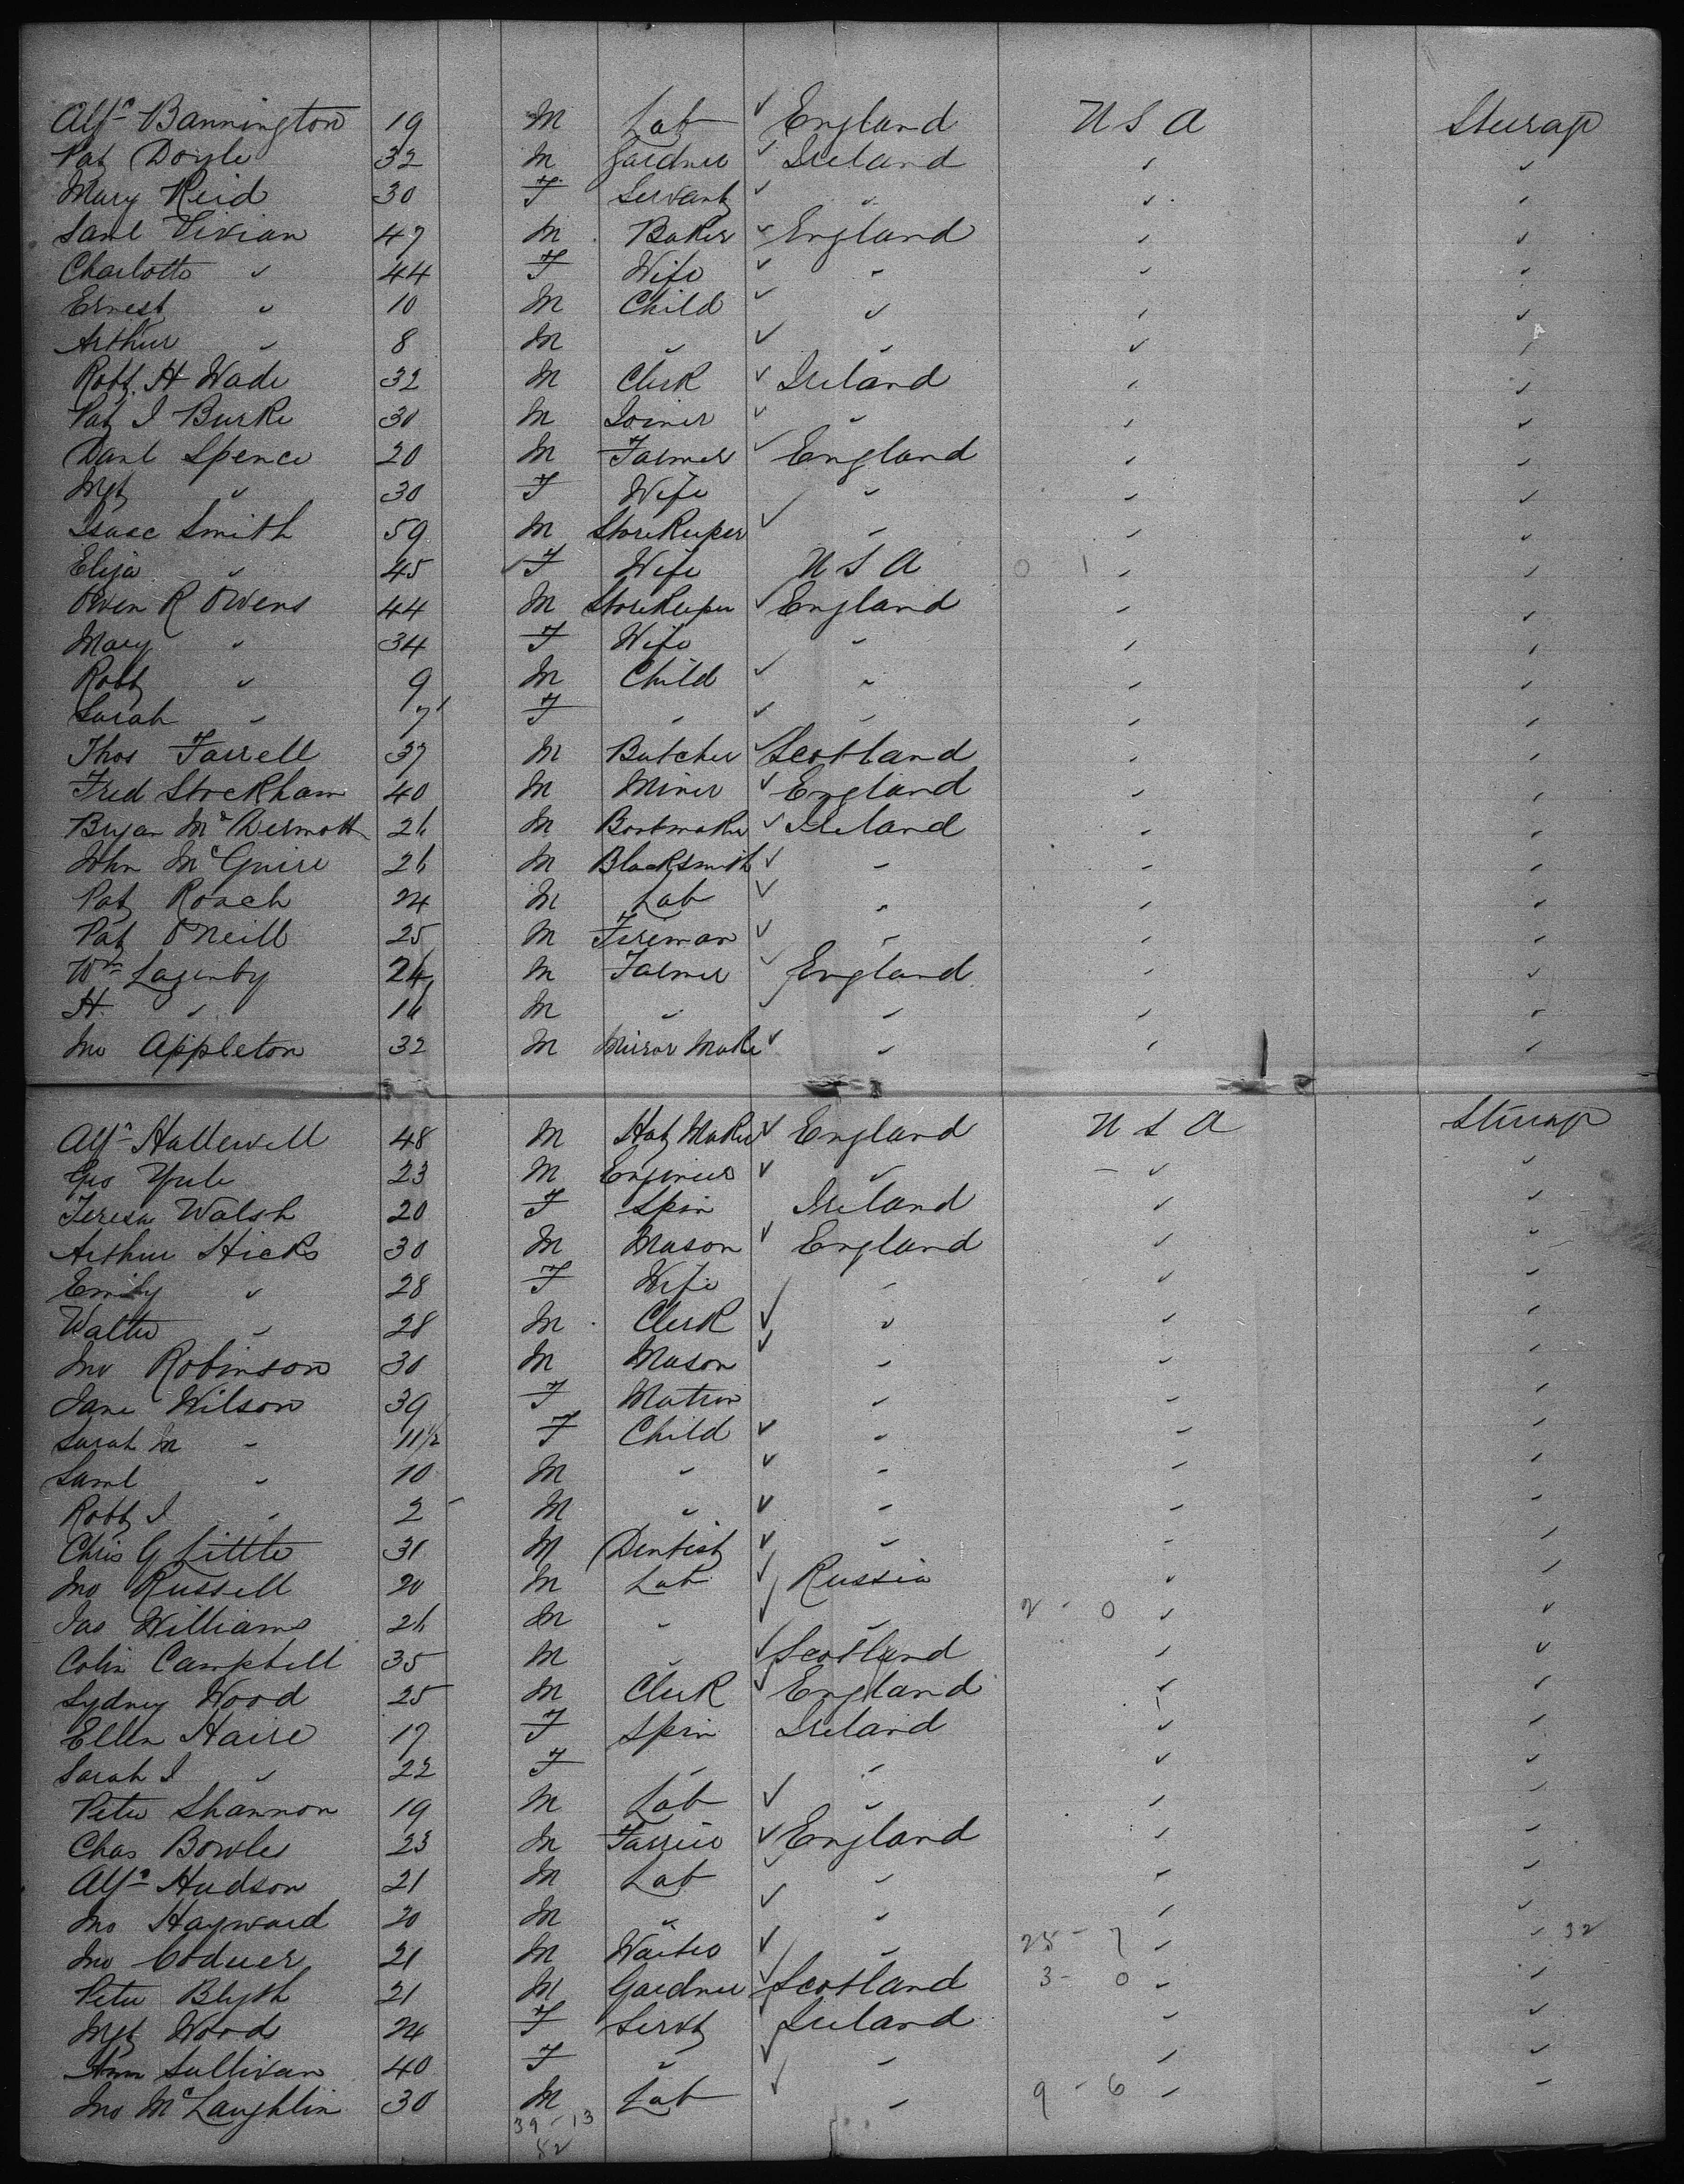 Alfd Bannington 19 M Lab ✓ England U S A Steerage
Pat Doyle 32 M Gardner ✓ Ireland " "
Mary Reid 30 F Servant ✓ " " "
Saml Vivian 47 M Baker ✓ England " "
Charlotte " 44 F Wife ✓ " " "
Ernest " 10 M Child ✓ " " "
Arthur " 8 M " ✓ " " "
Robt H Wade 32 M Clerk ✓ Ireland " "
Pat J Burke 30 M Joiner ✓ " " "
Danl Spence 20 M Farmer ✓ England " "
Mgt " 30 F Wife ✓ " " "
Isaac Smith 59 M Storekeeper ✓ " " "
Eliza " 45 ✓ F Wife U S A 0 1 " "
Owen R Owens 44 M Storekeeper ✓ England " "
Mary " 34 F Wife " " "
Robt " 9 M Child ✓ " " "
Sarah " 7 F " ✓ " " "
Thos Farrell 37 M Butcher ✓ Scotland " "
Fred Stockham 40 M Miner ✓ England " "
Bryan McDermott 26 M Bootmaker ✓ Ireland " "
John McGuire 26 M Blacksmith ✓ " " "
Pat Roach 24 M Lab ✓ " " "
Pat O'Neill 25 M Fireman ✓ " " "
Wm Lazenby 24 M Farmer ✓ England " "
H. " 16 M " ✓ " " "
Jno Appleton 32 M Mirror Make ✓ " " "
Alfd Hallewell 48 M Hat Maker ✓ England U S A Steerage
Geo Yule 23 M Engineer ✓ " " "
Teresa Walsh 20 F Spin Ireland " "
Arthur Hicks 30 M Mason ✓ England " "
Emily " 28 F Wife " " "
Walter " 28 M Clerk ✓ " " "
Jno Robinson 30 M Mason ✓ " " "
Jane Wilson 39 F Matron " " "
Sarah M " 11½ F Child ✓ " " "
Saml " 10 M " ✓ " " "
Robt J " 2 M " ✓ " " "
Chris G Little 31 M Dentist ✓ " " "
Jno Russell 20 M Lab ✓ Russia " "
Jas Williams 26 M " ✓ " 2 - 0 " "
Colin Campbell 35 M " ✓ Scotland " "
Sydney Wood 25 M Clerk ✓ England " "
Ellen Haire 17 F Spin Ireland " "
Sarah J " 22 F " " " "
Peter Shannon 19 M Lab ✓ " " "
Chas Bowles 23 M Farrier ✓ England " "
Alfd Hudson 21 M Lab ✓ " " "
Jno Hayward 20 M " ✓ " " "
Jno 21 M Waiter ✓ " 25 - 7 " " 32
Peter Blyth 21 M Gardner ✓ Scotland 3 - 0 " "
Mgt Wood 24 F Servt ✓ Ireland " "
Ann Sullivan 40 F " ✓ " " "
Jno McLaughlin 30 M Lab ✓ " 9 - 6 " "
39 - 13
52